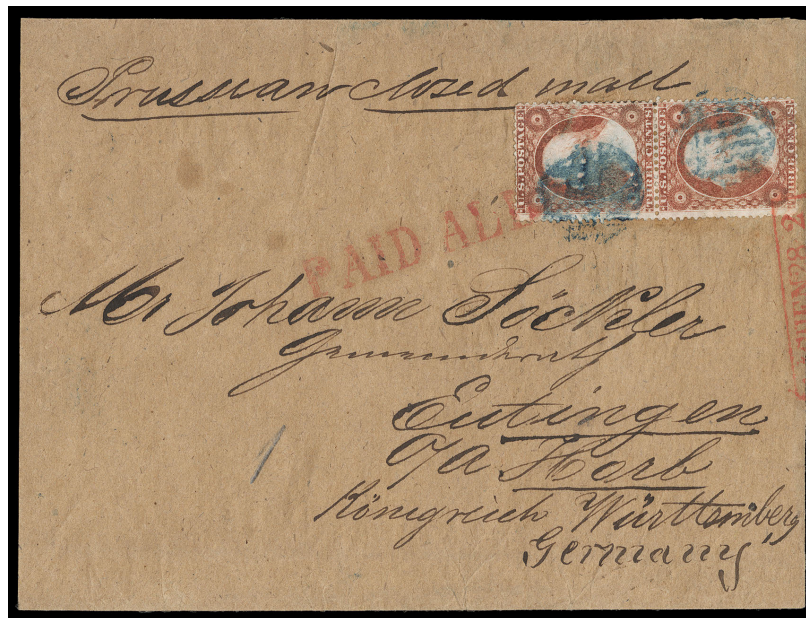 Prussian closed mail
U.S. POSTAGE THREE CENTS
U.S. POSTAGE THREE CENTS
PAID ALL
Mr Johann Söckler
Gemeinderath
Eutingen
O/A Horb
Königreich Württemberg
Germany